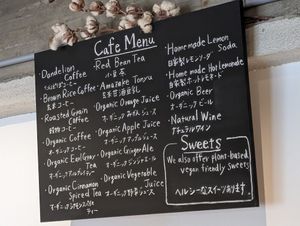 Cafe Menu
・Dandelion
Coffee
たんぽぽコーヒー
・Brown Rice Coffee
玄米コーヒー
・Roasted Grain
Coffee
穀物コーヒー
・Organic Coffee
オーガニックコーヒー
・Organic Earl Gray
Tea
・Organic Cinnamon
Spiced Tea
ティー
・Red Bean Tea
小豆茶
・Amazake Tonyu
玄米甘酒豆乳
・Organic Orange Juice
オーガニックオレンジジュース
・Organic Apple Juice
オーガニックアップルジュース
・Organic Ginger Ale
オーガニックジンジャーエール
・Organic Vegetable
Juice
オーガニック野菜ジュース
・Home made Lemon
Soda
自家製レモンソーダ
・Home made Hot Lemonade
自家製ホットレモネード
・Organic Beer
オーガニックビール
・Natural Wine
ナチュラルワイン
Sweets
We also offer plant-based
vegan friendly sweets
ヘルシーなスイーツあります